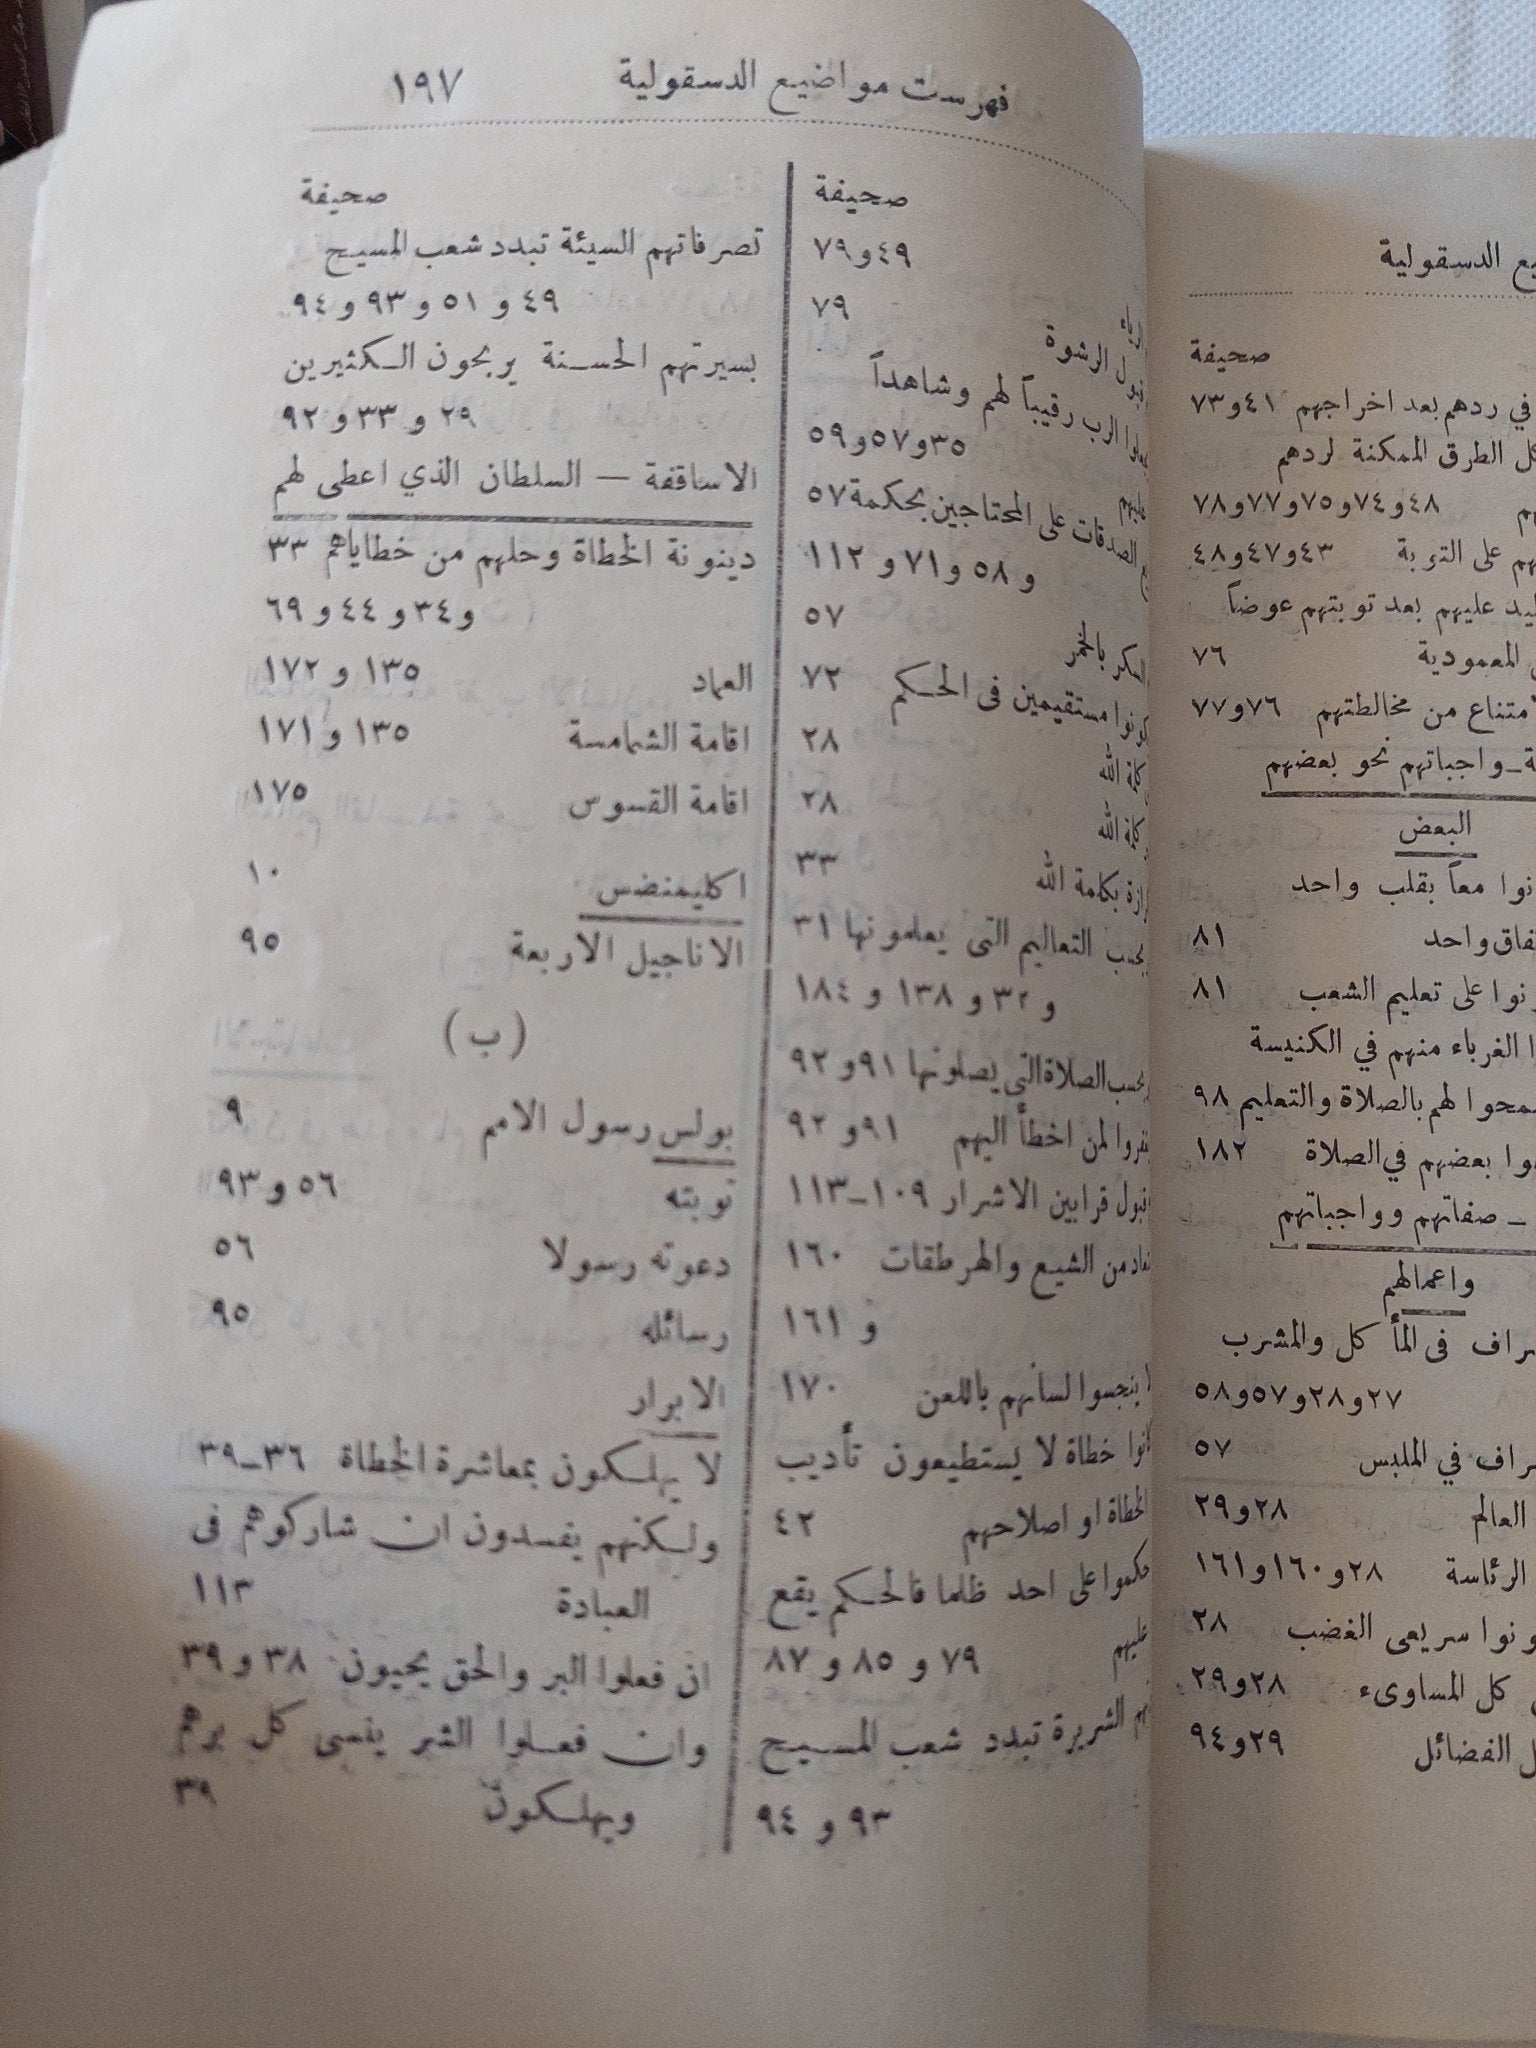 فهرست مواضيع الدسقولية ١٩٧
صحيفة
٤٩ و٧٩
الرياء ٧٩
قبول الرشوة
الرب رقيباً لهم وشاهداً
٣٥ و٥٧ و٥٩
الصدقات على المحتاجين بحكمة ٥٧
و ٥٨ و ٧١ و ١١٢
٥٧
السكر بالخمر ٧٢
مستقيمين فى الحكم
كلمة الله ٢٨
كلمة الله ٢٨
بكلمة الله ٣٣
بحسب التعاليم التى يعلمونها ٣١
و ٣٢ و ١٣٨ و ١٨٤
بحسب الصلاة التى يصلونها ٩١ و ٩٢
لمن اخطأ اليهم ٩١ و ٩٢
قبول قرابين الاشرار ١٠٩–١١٣
من الشيع والهرطقات ١٦٠
و ١٦١
ينجسوا لسانهم باللعن ١٧٠
خطاة لا يستطيعون تأديب
الخطاة او اصلاحهم ٤٢
على احد ظلما فالحكم يقع
عليهم ٧٩ و ٨٥ و ٨٧
الشريرة تبدد شعب المسيح
٩٣ و ٩٤
صحيفة
تصرفاتهم السيئة تبدد شعب المسيح
٤٩ و ٥١ و ٩٣ و ٩٤
بسيرتهم الحسنة يربحون الكثيرين
٢٩ و ٣٣ و ٩٢
الاساقفة — السلطان الذي اعطى لهم
دينونة الخطاة وحلهم من خطاياهم ٣٣
و ٣٤ و ٤٤ و ٦٩
العماد ١٣٥ و ١٧٢
اقامة الشمامسة ١٣٥ و ١٧١
اقامة القسوس ١٧٥
اكليمنضس ١٠
الاناجيل الاربعة ٩٥
( ب )
بولس رسول الامم ٩
توبته ٥٦ و ٩٣
دعوته رسولا ٥٦
رسائله ٩٥
الابرار
لا يهلكون بمعاشرة الخطاة ٣٦–٣٩
ولكنهم يفسدون ان شاركوهم فى
العبادة ١١٣
ان فعلوا البر والحق يحيون ٣٨ و ٣٩
وان فعلوا الشر ينسى كل برهم
ويهلكون ٣٩
الدسقولية
صحيفة
في ردهم بعد اخراجهم ٤١ و٧٣
الطرق الممكنة لردهم
٤٨ و٧٤ و٧٥ و٧٧ و٧٨
على التوبة ٤٣ و٤٧ و٤٨
عليهم بعد توبتهم عوضاً
المعمودية ٧٦
من مخالطتهم ٧٦ و٧٧
واجباتهم نحو بعضهم
البعض
معاً بقلب واحد
واحد ٨١
على تعليم الشعب ٨١
الغرباء منهم في الكنيسة
لهم بالصلاة والتعليم ٩٨
بعضهم في الصلاة ١٨٢
– صفاتهم وواجباتهم
واعمالهم
فى المأكل والمشرب
٢٧ و٢٨ و٥٧ و٥٨
في الملبس ٥٧
العالم ٢٨ و٢٩
الرئاسة ٢٨ و١٦٠ و١٦١
سريعى الغضب ٢٨
كل المساوىء ٢٨ و٢٩
الفضائل ٢٩ و٩٤